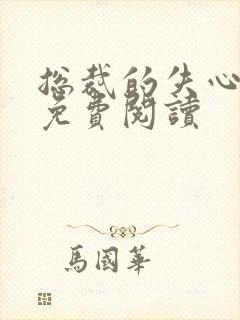 总裁的失心
免費閱讀
馬國華